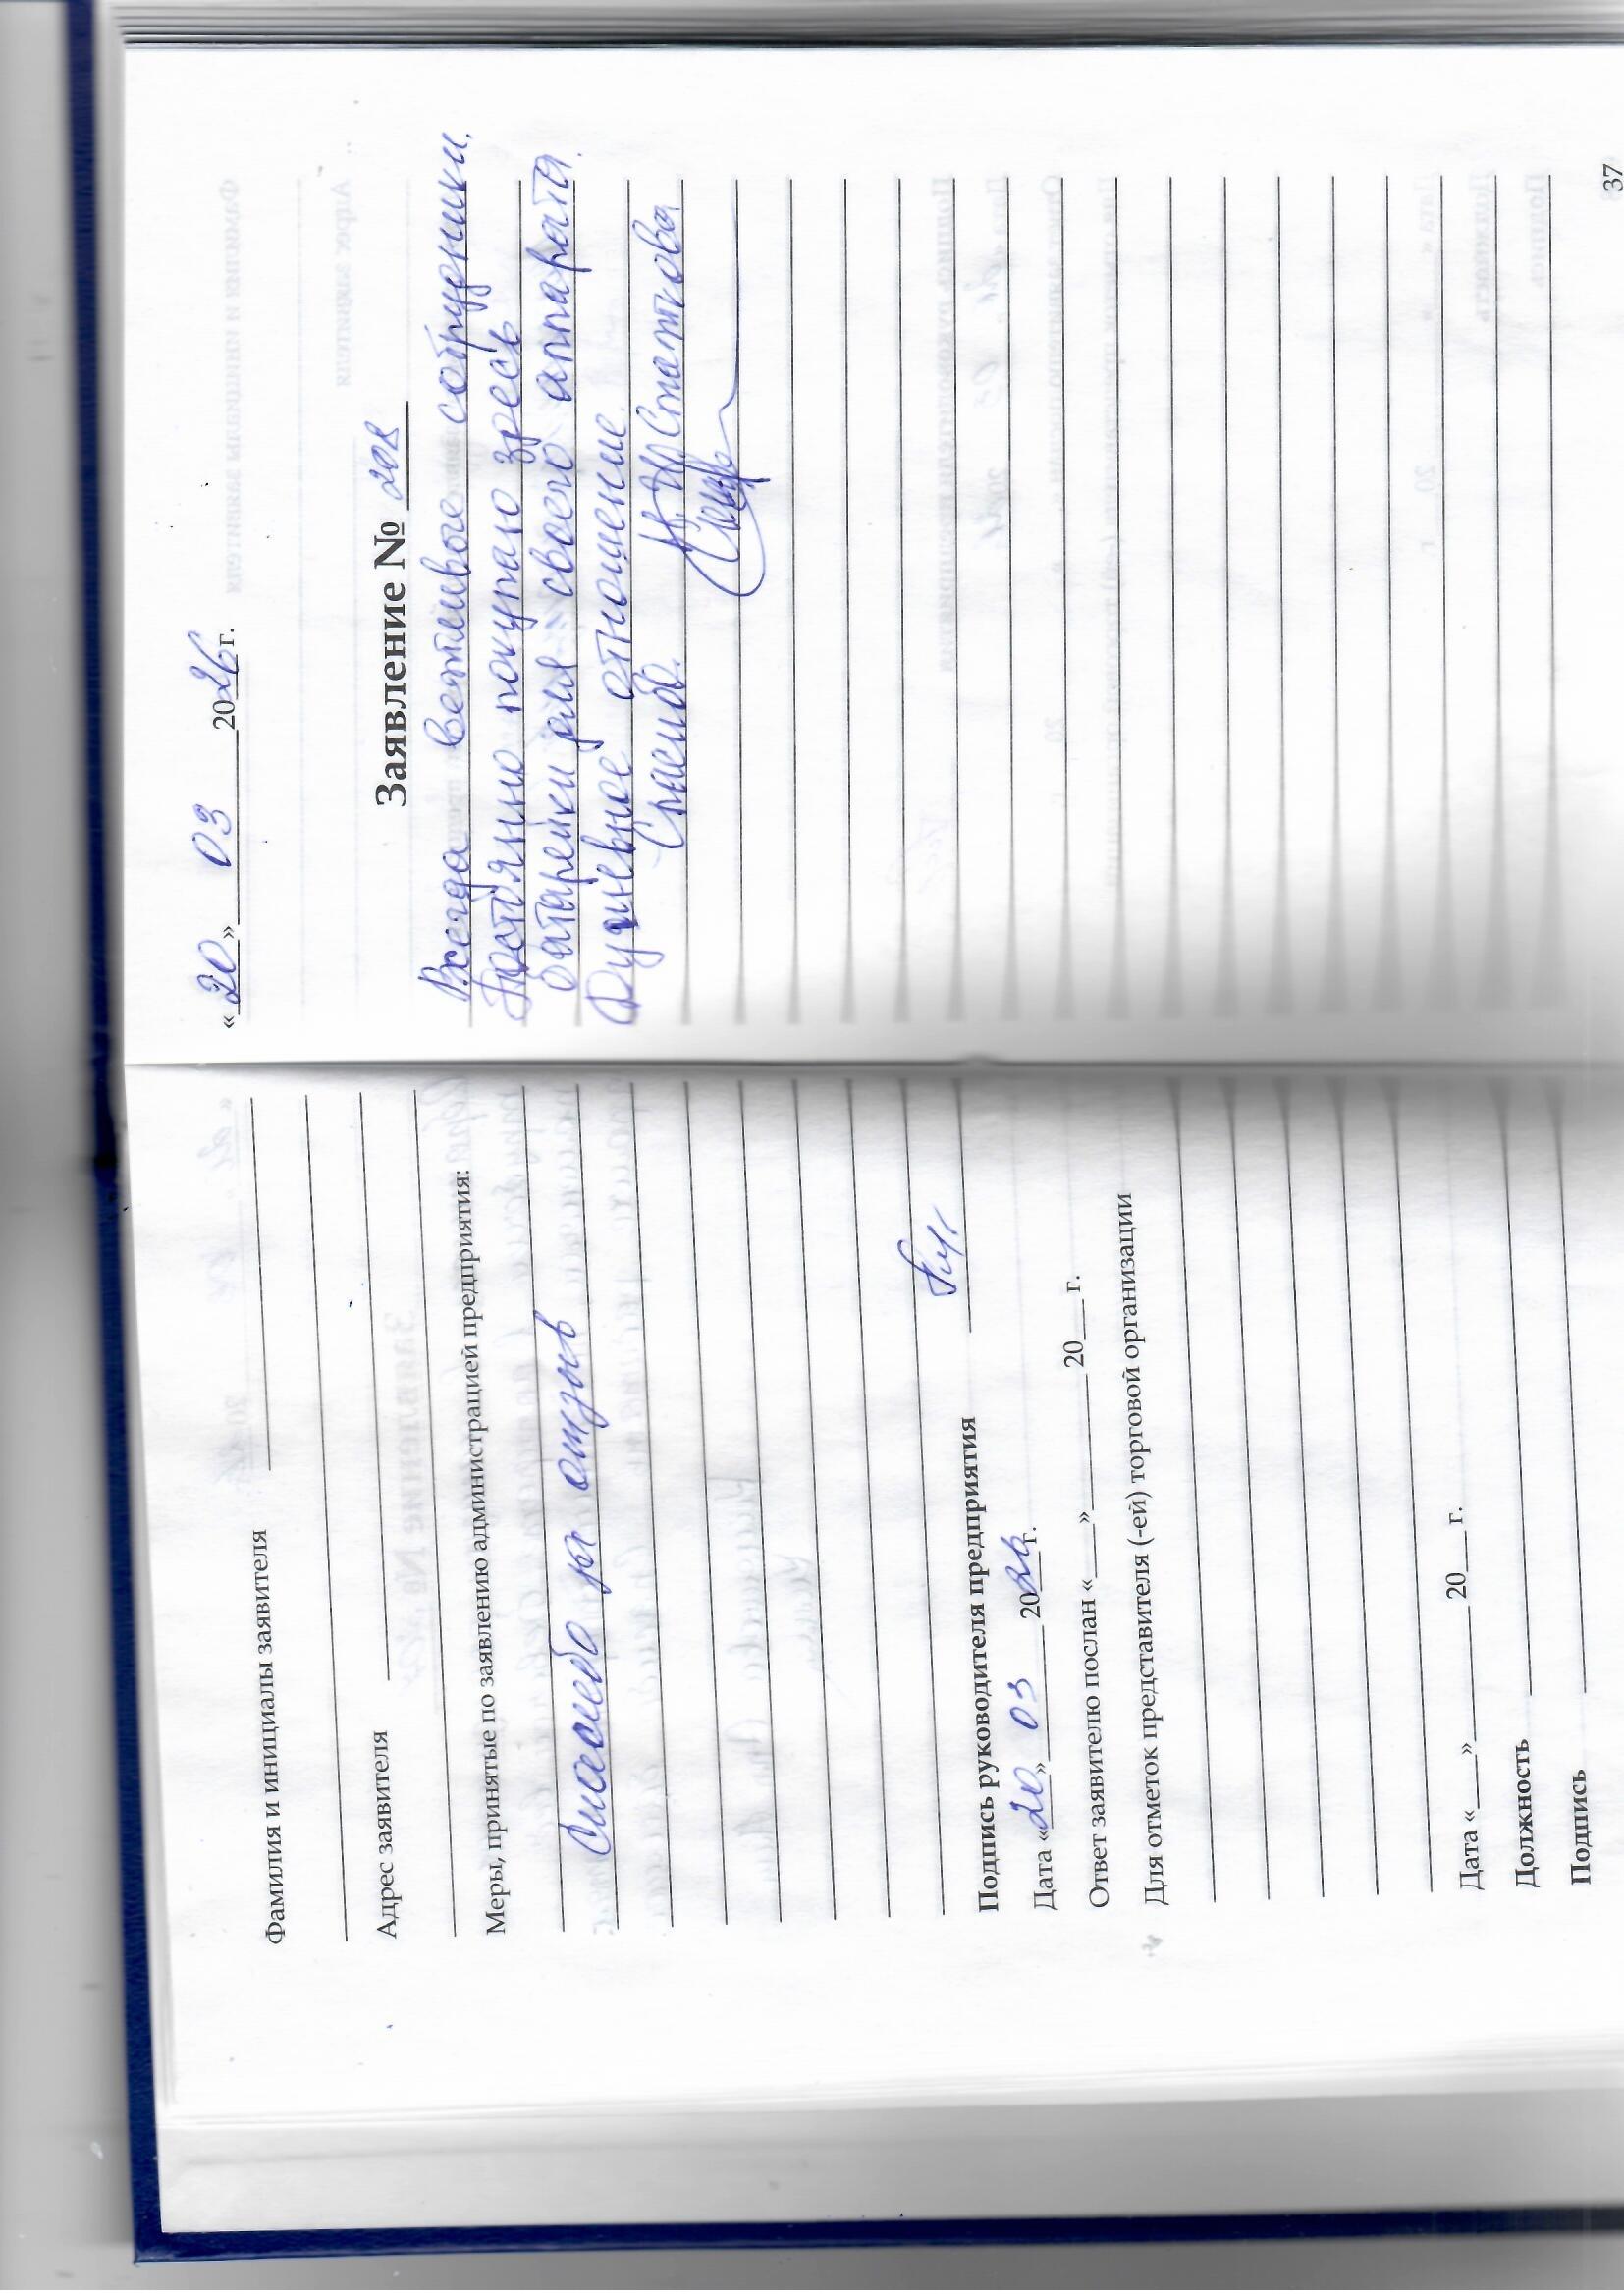 Фамилия и инициалы заявителя
Адрес заявителя
Меры, принятые по заявлению администрацией предприятия:
Спасибо за отзыв
Подпись руководителя предприятия
Дата «20» 03 2026 г.
Ответ заявителю послан «___» ______ 20___ г.
Для отметок представителя (-ей) торговой организации
Дата «___» ______ 20___ г.
Должность
Подпись
«20» 03 2026 г.
Заявление № 208
Всегда ветливые сотрудники.
Постоянно покупаю здесь
батарейки для своего аппарата.
Душевное отношение.
Спасибо. Статкова
37